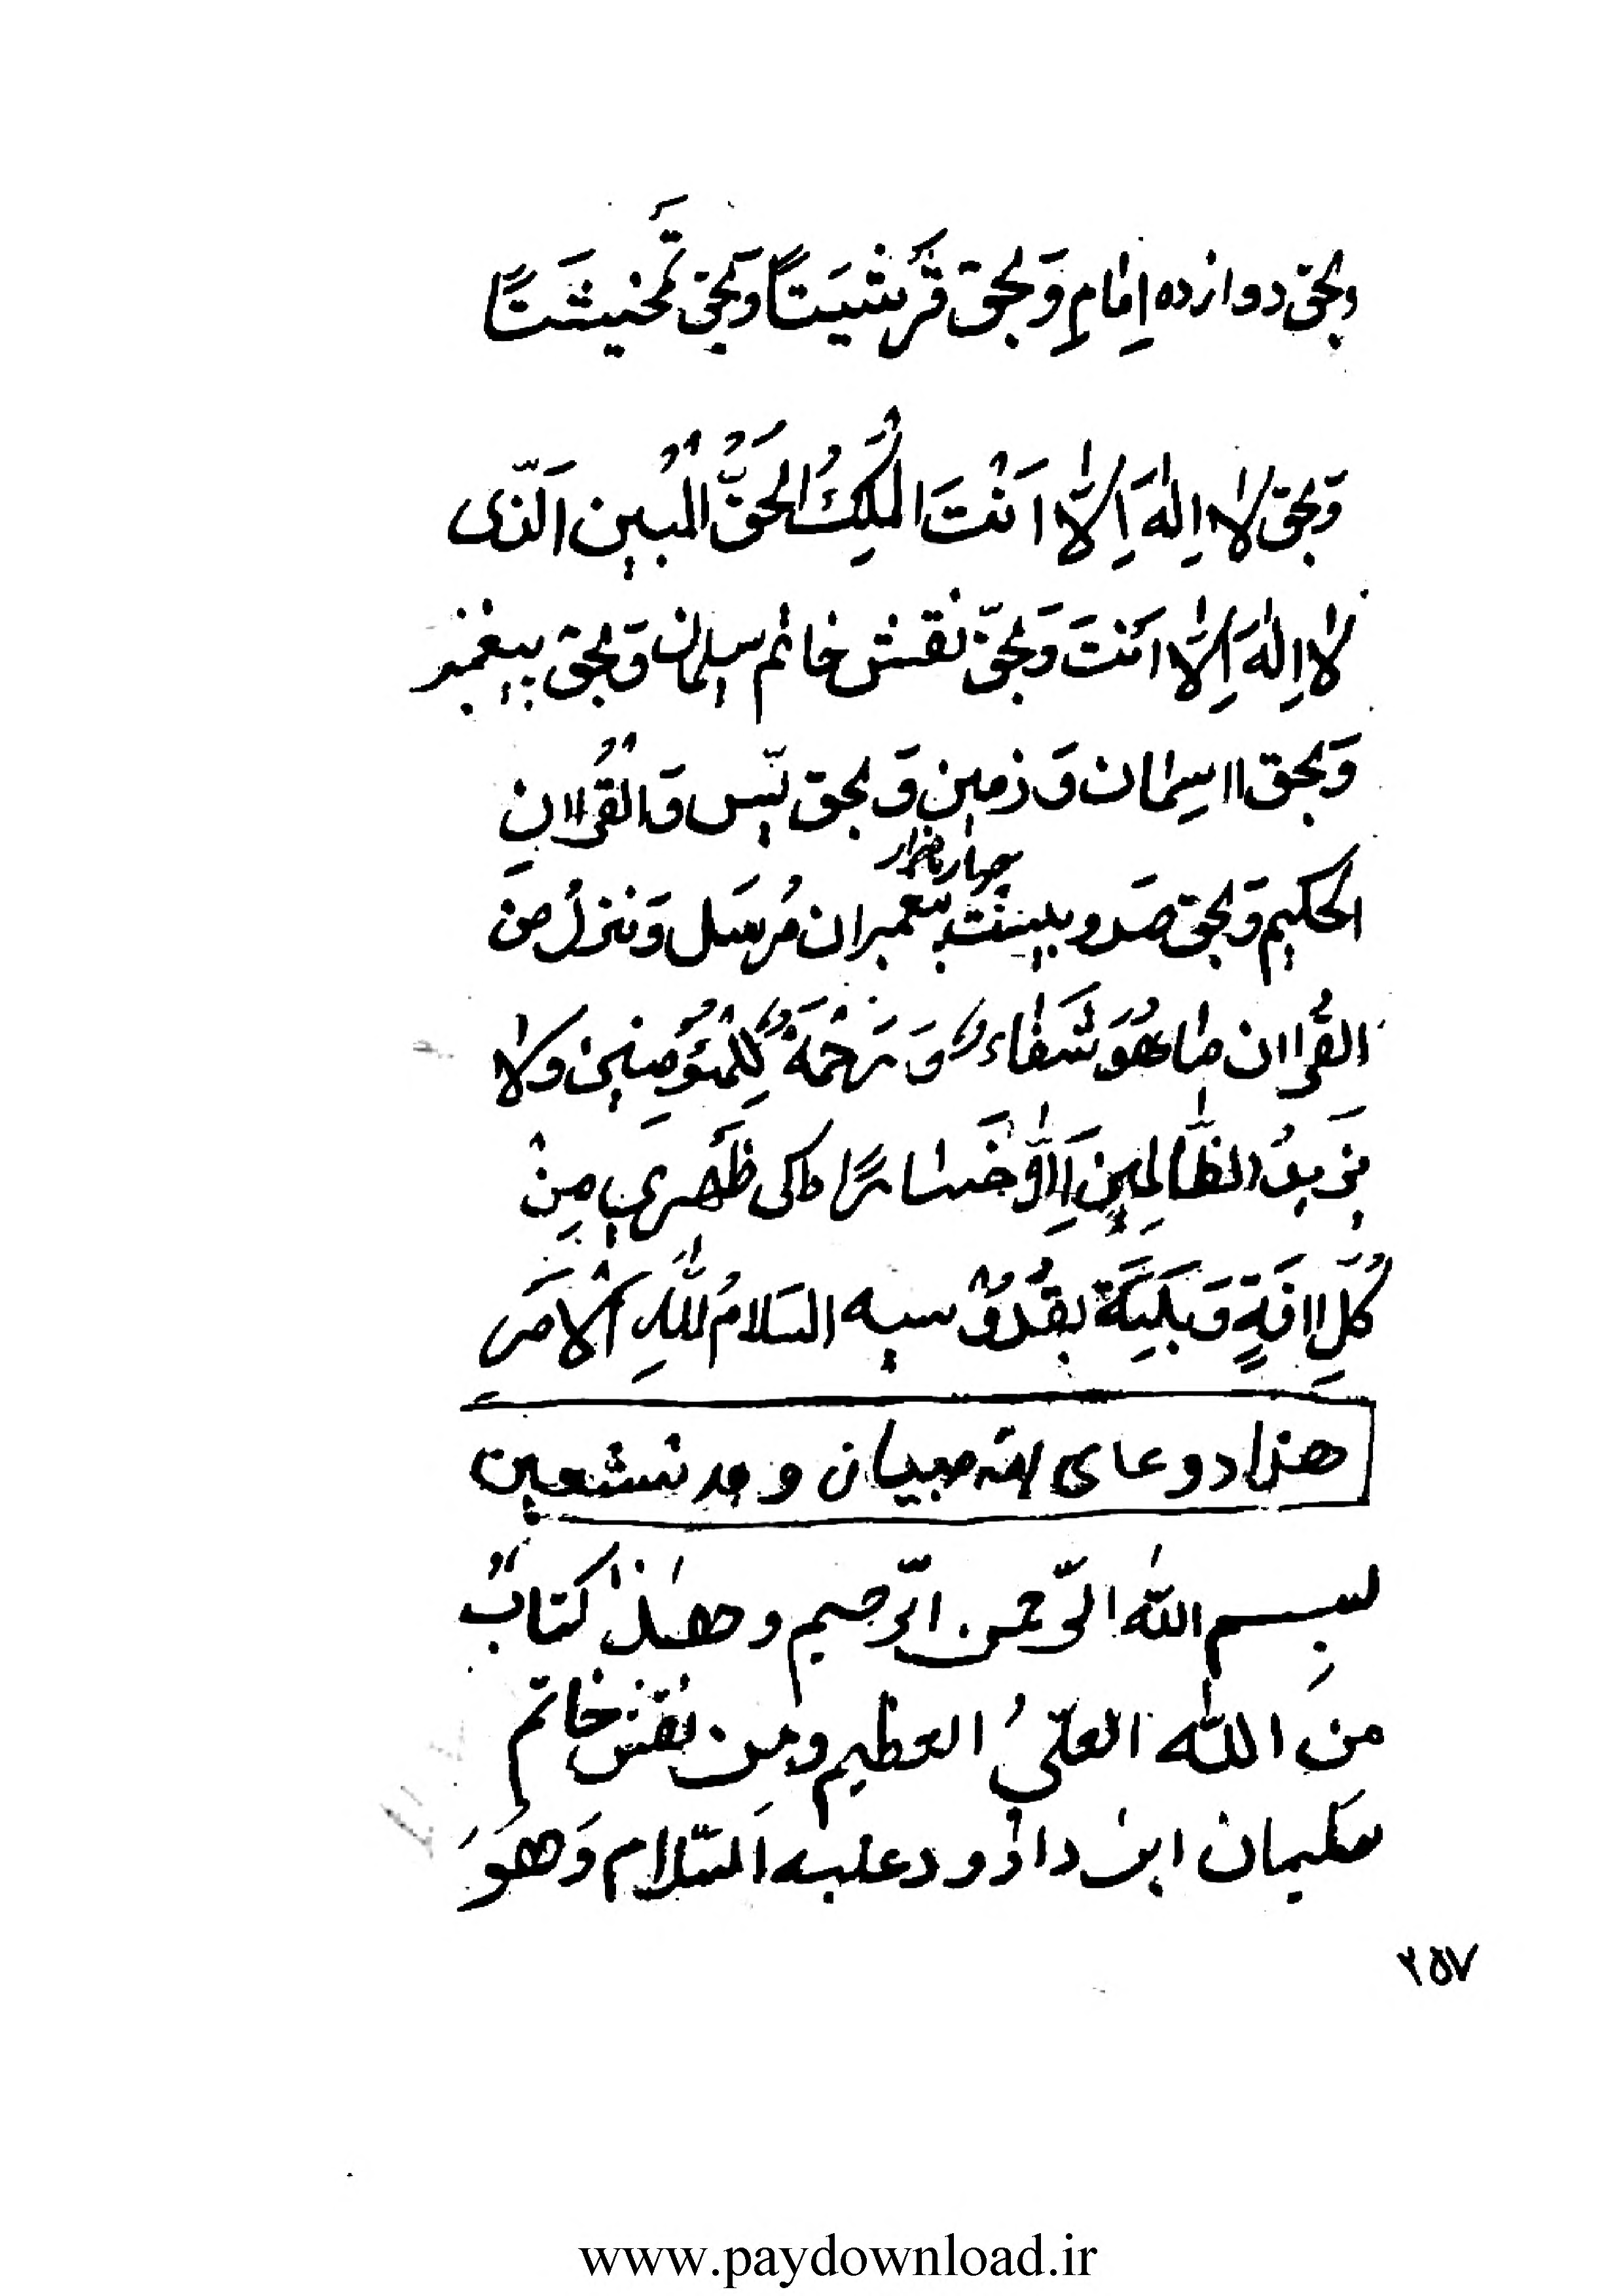 وبحق دوازده اِمٰامِ وَبحق قَرَشیَتاً وبحق تمخیشَتاً
وَبحق لاٰ اِلٰهَ اِلاّٰ اَنْتَ المَلِكُ الحَقُّ المُبین اَلَذّی
لاٰ اِلٰهَ اِلاّٰ اَنتَ وَبحَقّ نقش خاتم سلیمان وَبحق پیغمبر
وَبحق ااسِمٰان وَ زمین وَبحق یٓس وَالقُراانِ
الحکیم وَبحق صَدو بیست چهار هزار پیغمبران مُرسَل وَننزلُ من
القُراان مٰا هُوَ شَفٰاءٌ وَ رَحْمَةٌ لِلْمُؤمِنین ولاٰ
یزَیدُ الظّٰالِمین اِلاّٰ خَسٰارًا ظَهری مِنْ
كُلِّ اافَةٍ وَبَلِیَّةٍ السَلامُ لِلّٰهِ الْامَرِ
هذا دوعای امّ صبیان
بسِم اللّٰه الرّحمن الرّحیم وهٰذا كتابٌ
من اللّٰه العلّیُ العظیم ومِن نقش خاتم
سَلیمان ابن داؤود علیه اَلسّلام وَهُوَ
۲۵۷
www.paydownload.ir